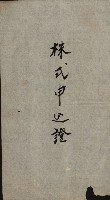 株式申込證